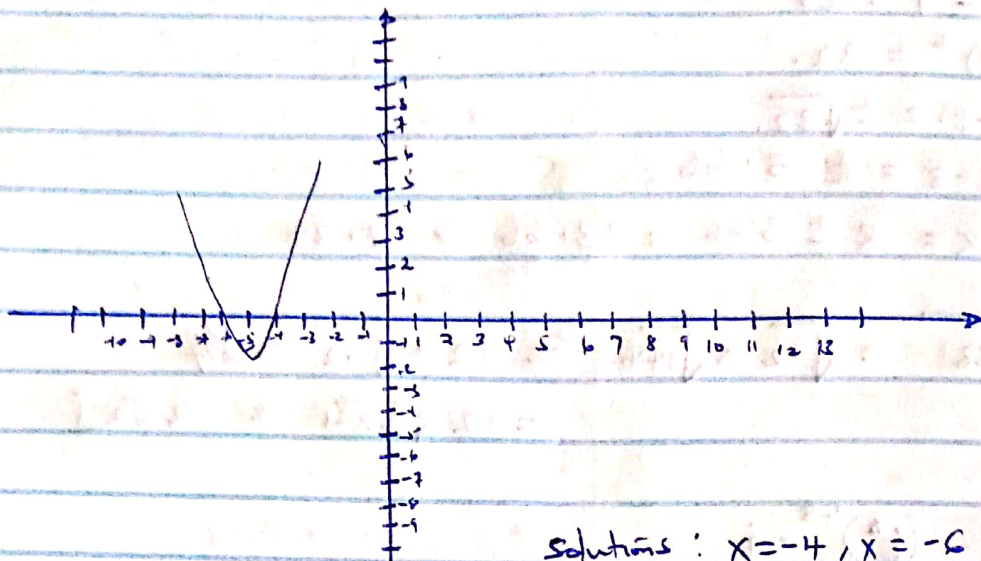 9
8
7
6
5
4
3
2
1
-10 -9 -8 -7 -6 -5 -4 -3 -2 -1 1 2 3 4 5 6 7 8 9 10 11 12 13
-1
-2
-3
-4
-5
-6
-7
-8
-9
solutions : x=-4, x = -6